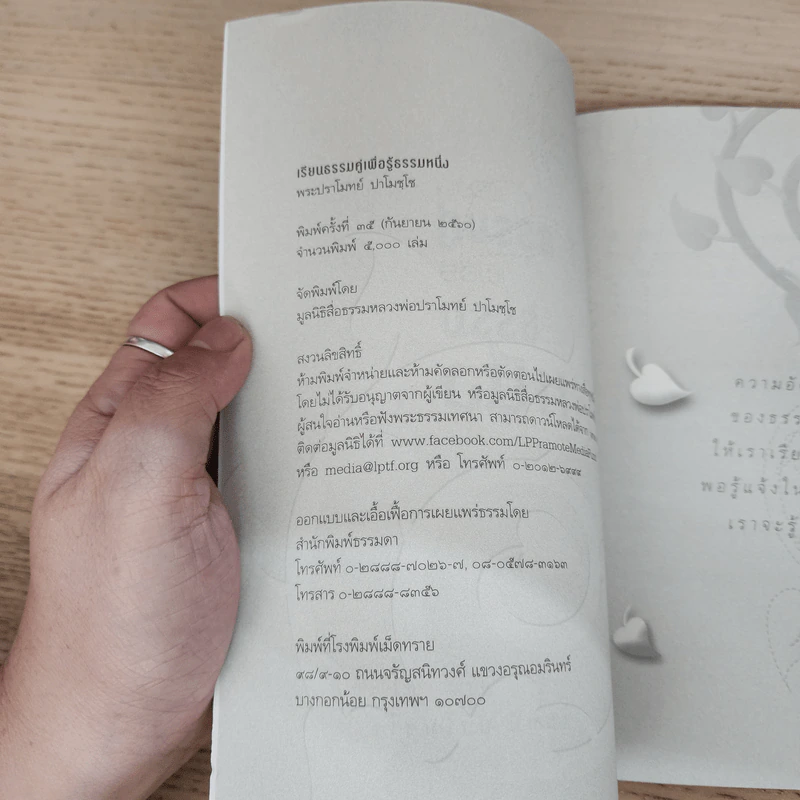 เรียนธรรมคู่เพื่อรู้ธรรมหนึ่ง
พระปราโมทย์ ปาโมชฺโช
พิมพ์ครั้งที่ ๓๕ (กันยายน ๒๕๖๐)
จำนวนพิมพ์ ๕,๐๐๐ เล่ม
จัดพิมพ์โดย
มูลนิธิสื่อธรรมหลวงพ่อปราโมทย์ ปาโมชฺโช
สงวนลิขสิทธิ์
ห้ามพิมพ์จำหน่ายและห้ามคัดลอกหรือตัดตอนไปเผยแพร่
โดยไม่ได้รับอนุญาตจากผู้เขียน หรือมูลนิธิสื่อธรรมหลวงพ่อ
ผู้สนใจอ่านหรือฟังพระธรรมเทศนา สามารถดาวน์โหลดได้จาก
ติดต่อมูลนิธิได้ที่ www.facebook.com/LPPramoteMedia
หรือ media@lptf.org หรือ โทรศัพท์ ๐-๒๐๑๒-๖๙๙๙
ออกแบบและเอื้อเฟื้อการเผยแพร่ธรรมโดย
สำนักพิมพ์ธรรมดา
โทรศัพท์ ๐-๒๘๘๘-๗๐๒๖-๗, ๐๘-๐๕๗๘-๓๑๖๓
โทรสาร ๐-๒๘๘๘-๘๓๕๖
พิมพ์ที่โรงพิมพ์เม็ดทราย
๙๘/๙-๑๐ ถนนจรัญสนิทวงศ์ แขวงอรุณอมรินทร์
บางกอกน้อย กรุงเทพฯ ๑๐๗๐๐
ความ
ของธรร
ให้เราเรีย
พอรู้แจ้งใน
เราจะรู้